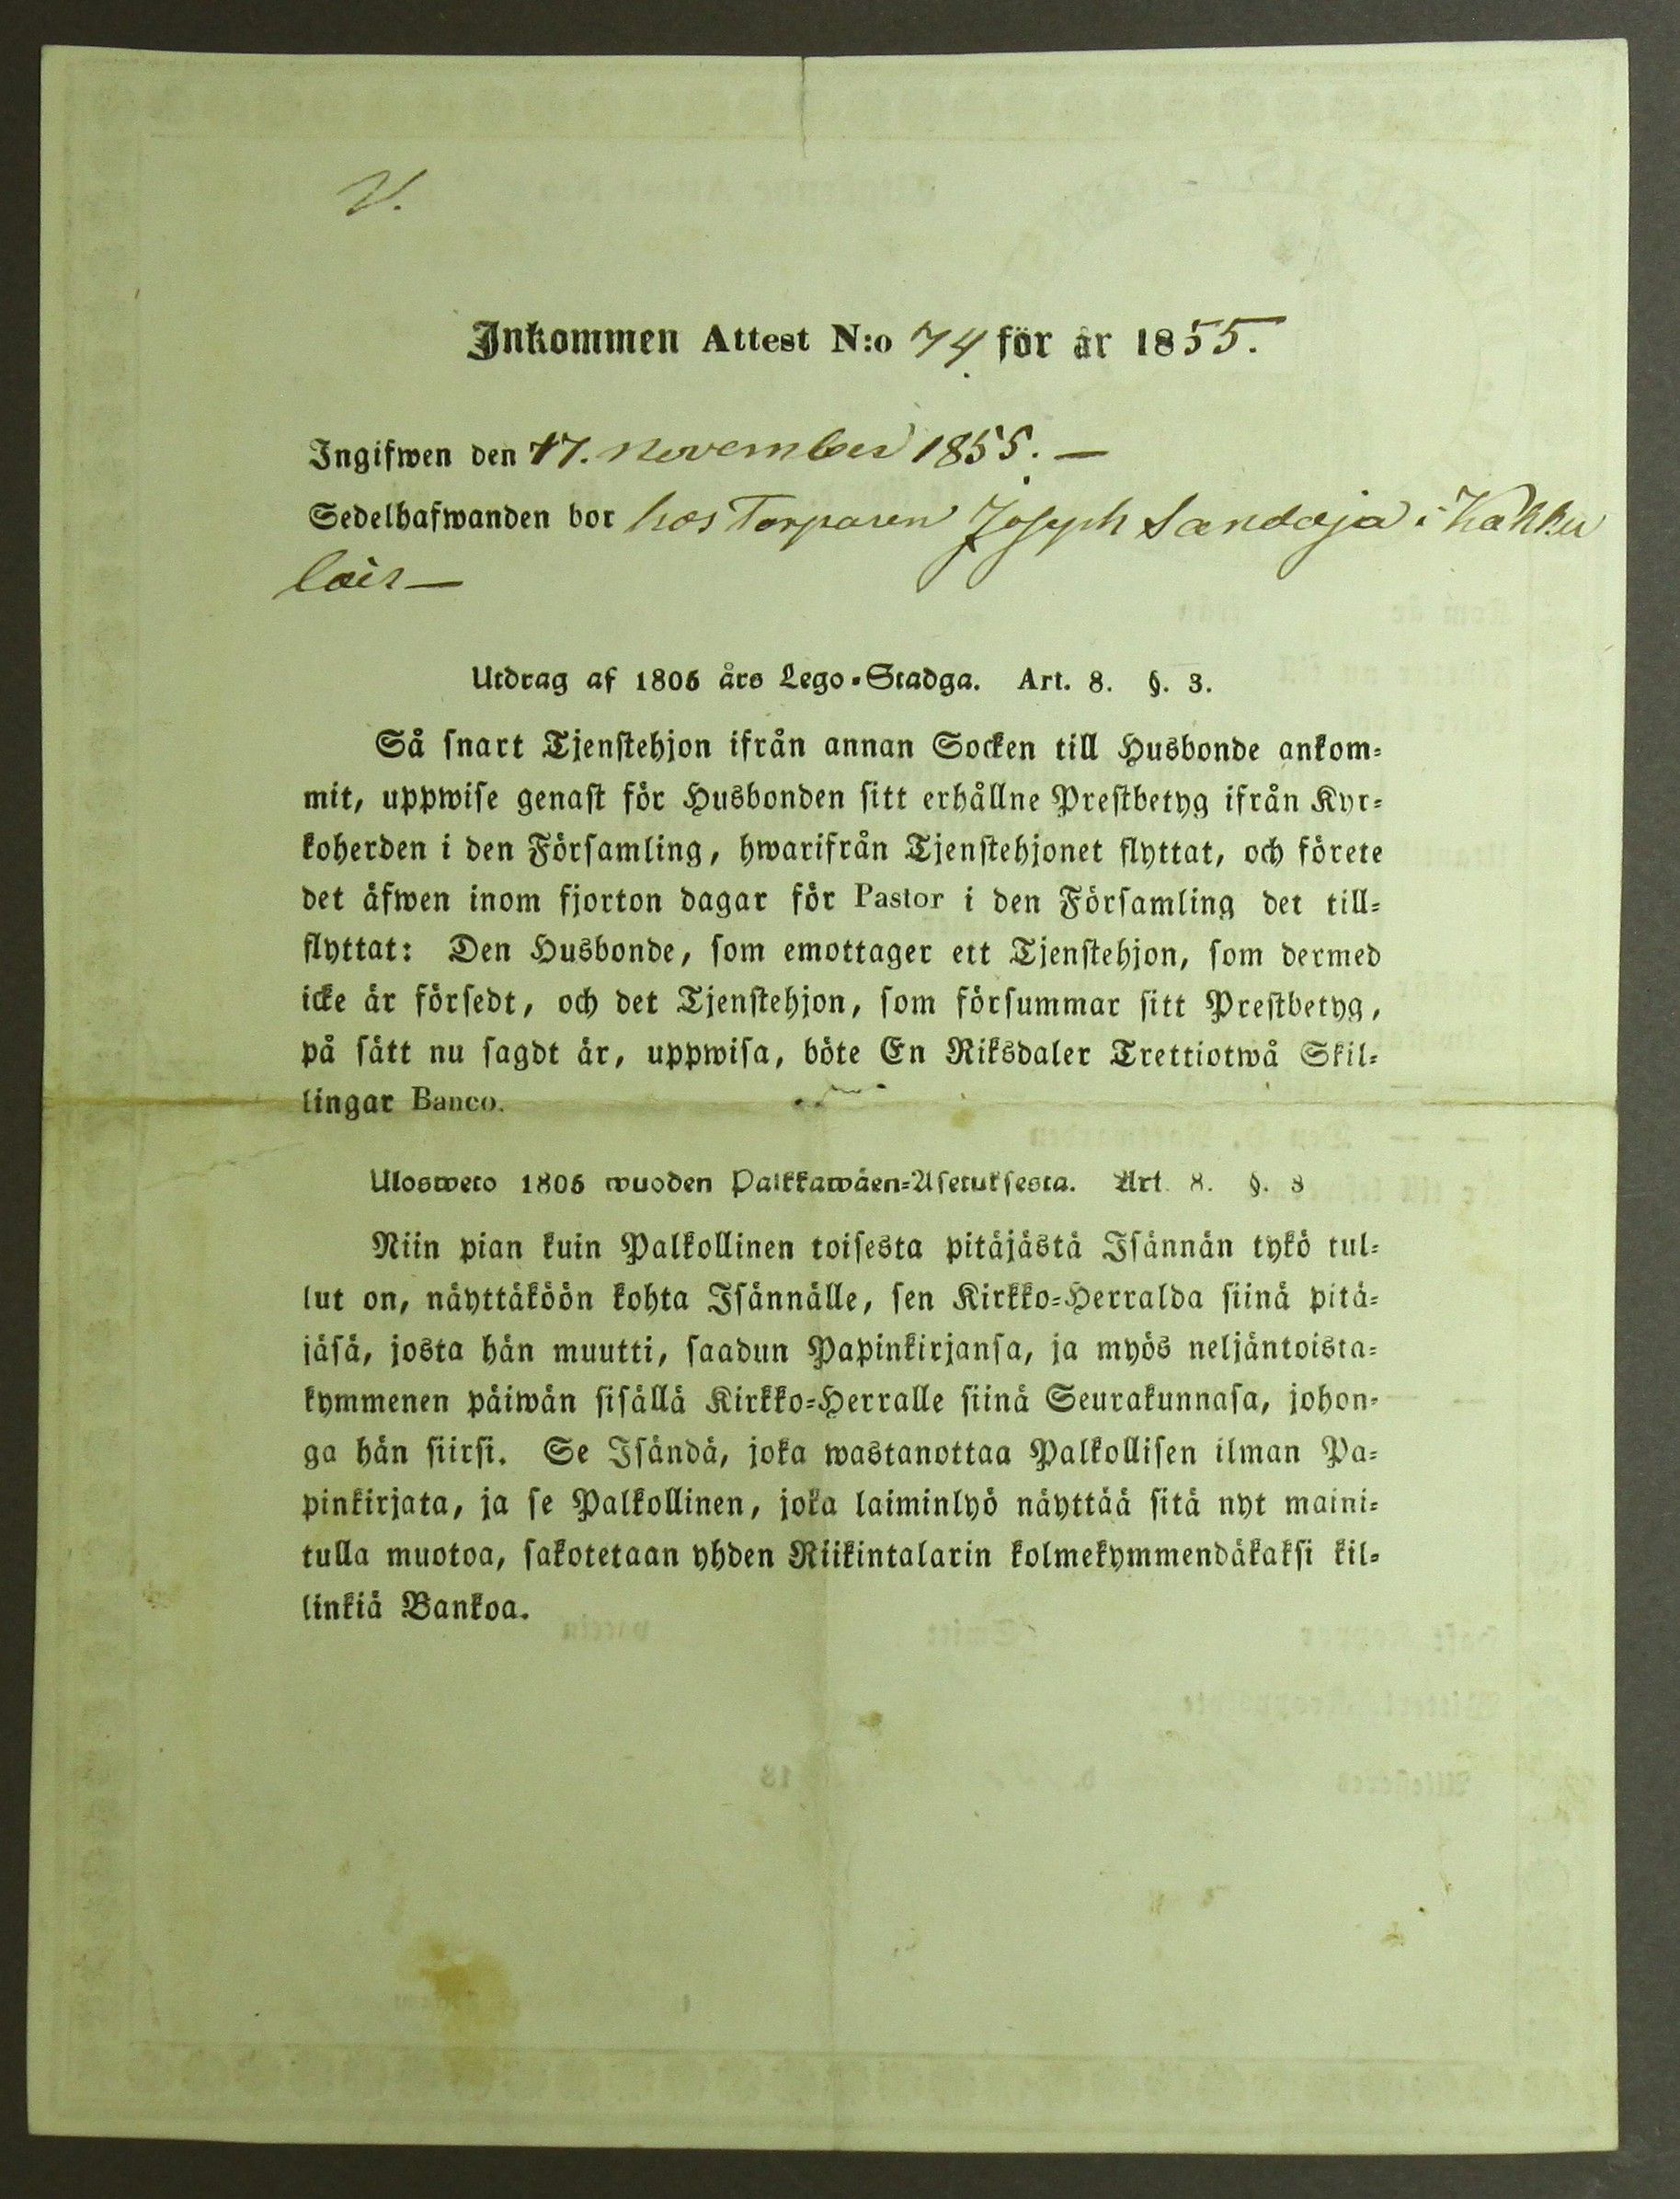 V.
Inkommen Attest N:o 74 för år 1855.
Ingifwen den 17. november 1855. —
Sedelhafwanden bor hos Torparen Joseph Sandoja i Kakku
lais —
Utdrag af 1805 års Lego-Stadga. Art. 8. §. 3.
Så snart Tjenstehjon ifrån annan Socken till Husbonde ankom-
mit, uppwise genast för Husbonden sitt erhållne Prestbetyg ifrån Kyr-
koherden i den Församling, hwarifrån Tjenstehjonet flyttat, och förete
det äfwen inom fjorton dagar för Pastor i den Församling det till-
flyttat: Den Husbonde, som emottager ett Tjenstehjon, som dermed
icke är försedt, och det Tjenstehjon, som försummar sitt Prestbetyg,
på sätt nu sagdt är, uppwisa, böte En Riksdaler Trettiotwå Skil-
lingar Banco.
Ulosweto 1805 wuoden Palkkawäen-Asetuksesta. Art. 8. §. 3
Niin pian kuin Palkollinen toisesta pitäjästä Isännän tykö tul-
lut on, näyttäköön kohta Isännälle, sen Kirkko-Herralda siinä pitä-
jäsä, josta hän muutti, saadun Papinkirjansa, ja myös neljäntoista-
kymmenen päiwän sisällä Kirkko-Herralle siinä Seurakunnasa, johon-
ga hän siirsi. Se Isändä, joka wastanottaa Palkollisen ilman Pa-
pinkirjata, ja se Palkollinen, joka laiminlyö näyttää sitä nyt maini-
tulla muotoa, sakotetaan yhden Riikintalarin kolmekymmendäkaksi kil-
linkiä Bankoa.